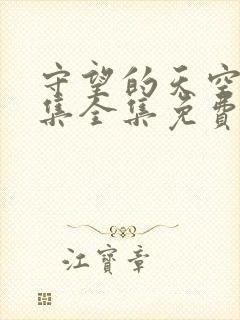 守望的天空
集全集免費
江寶章